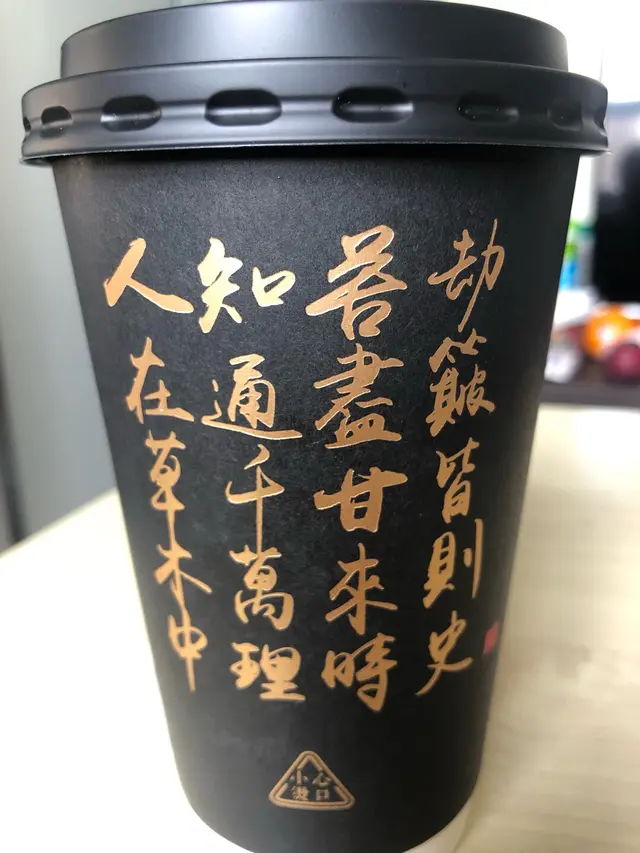 劫簸皆則史
苦盡甘來時
知通千萬理
人在草木中
小心
燙口